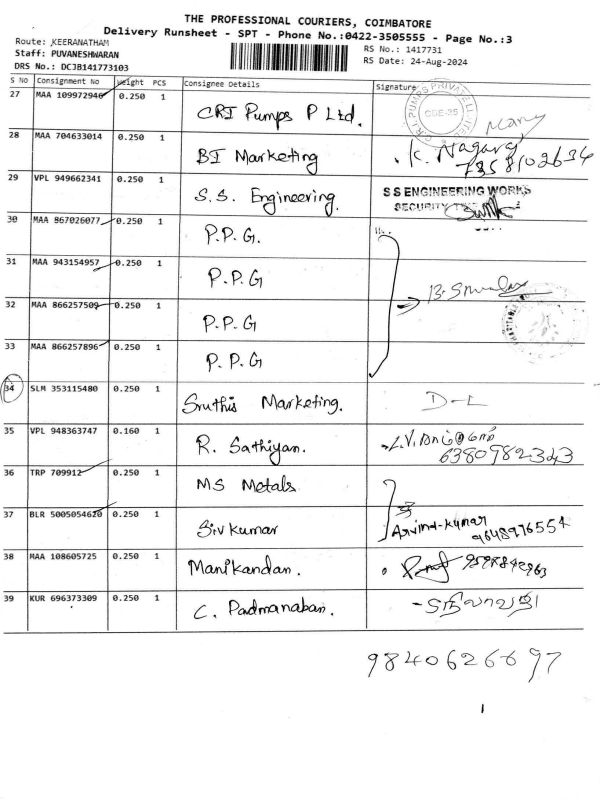 THE PROFESSIONAL COURIERS, COIMBATORE
Delivery Runsheet - SPT - Phone No.:0422-3505555 - Page No.:3
Route: KEERANATHAM
Staff: PUVANESHWARAN
DRS No.: DCJB141773103
RS No.: 1417731
RS Date: 24-Aug-2024
S No Consignment No Weight PCS Consignee Details Signature
27 MAA 109972946 0.250 1 CRI Pumps P Ltd.
CBE-25
28 MAA 704633014 0.250 1 BI Marketing K. Nagaraj
7358102634
29 VPL 949662341 0.250 1 S.S. Engineering. S S ENGINEERING WORKS
SECURITY
30 MAA 867026077 0.250 1 P.P.G.
31 MAA 943154957 0.250 1 P.P.G
32 MAA 866257509 0.250 1 P.P.G
33 MAA 866257896 0.250 1 P.P.G
34 SLM 353115480 0.250 1 Sruthis Marketing. D-L
35 VPL 948363747 0.160 1 R. Sathiyan.
6380982343
36 TRP 709912 0.250 1 MS Metals
37 BLR 5005054620 0.250 1 Sivkumar Arvind-kumar
9648976554
38 MAA 108605725 0.250 1 Manikandan.
39 KUR 696373309 0.250 1 C. Padmanaban.
9840626697
1